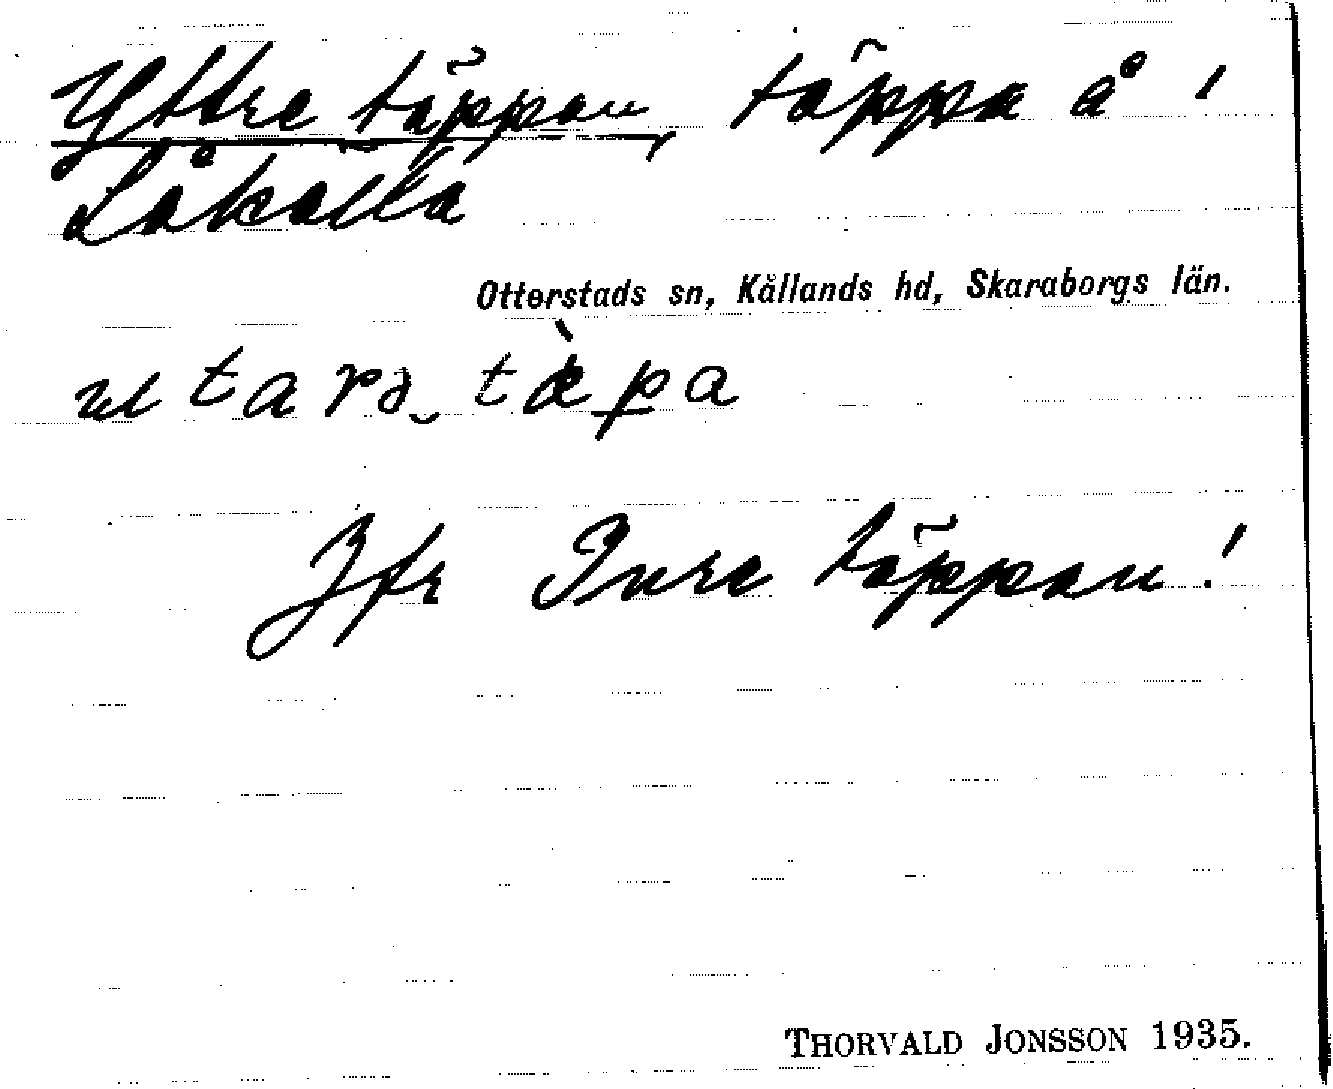 Yttre täppan, täppa å !
Låkälla
Otterstads sn, Kållands hd, Skaraborgs län.
utarə tæ̀pa
Jfr Inre täppan!
THORVALD JONSSON 1935.